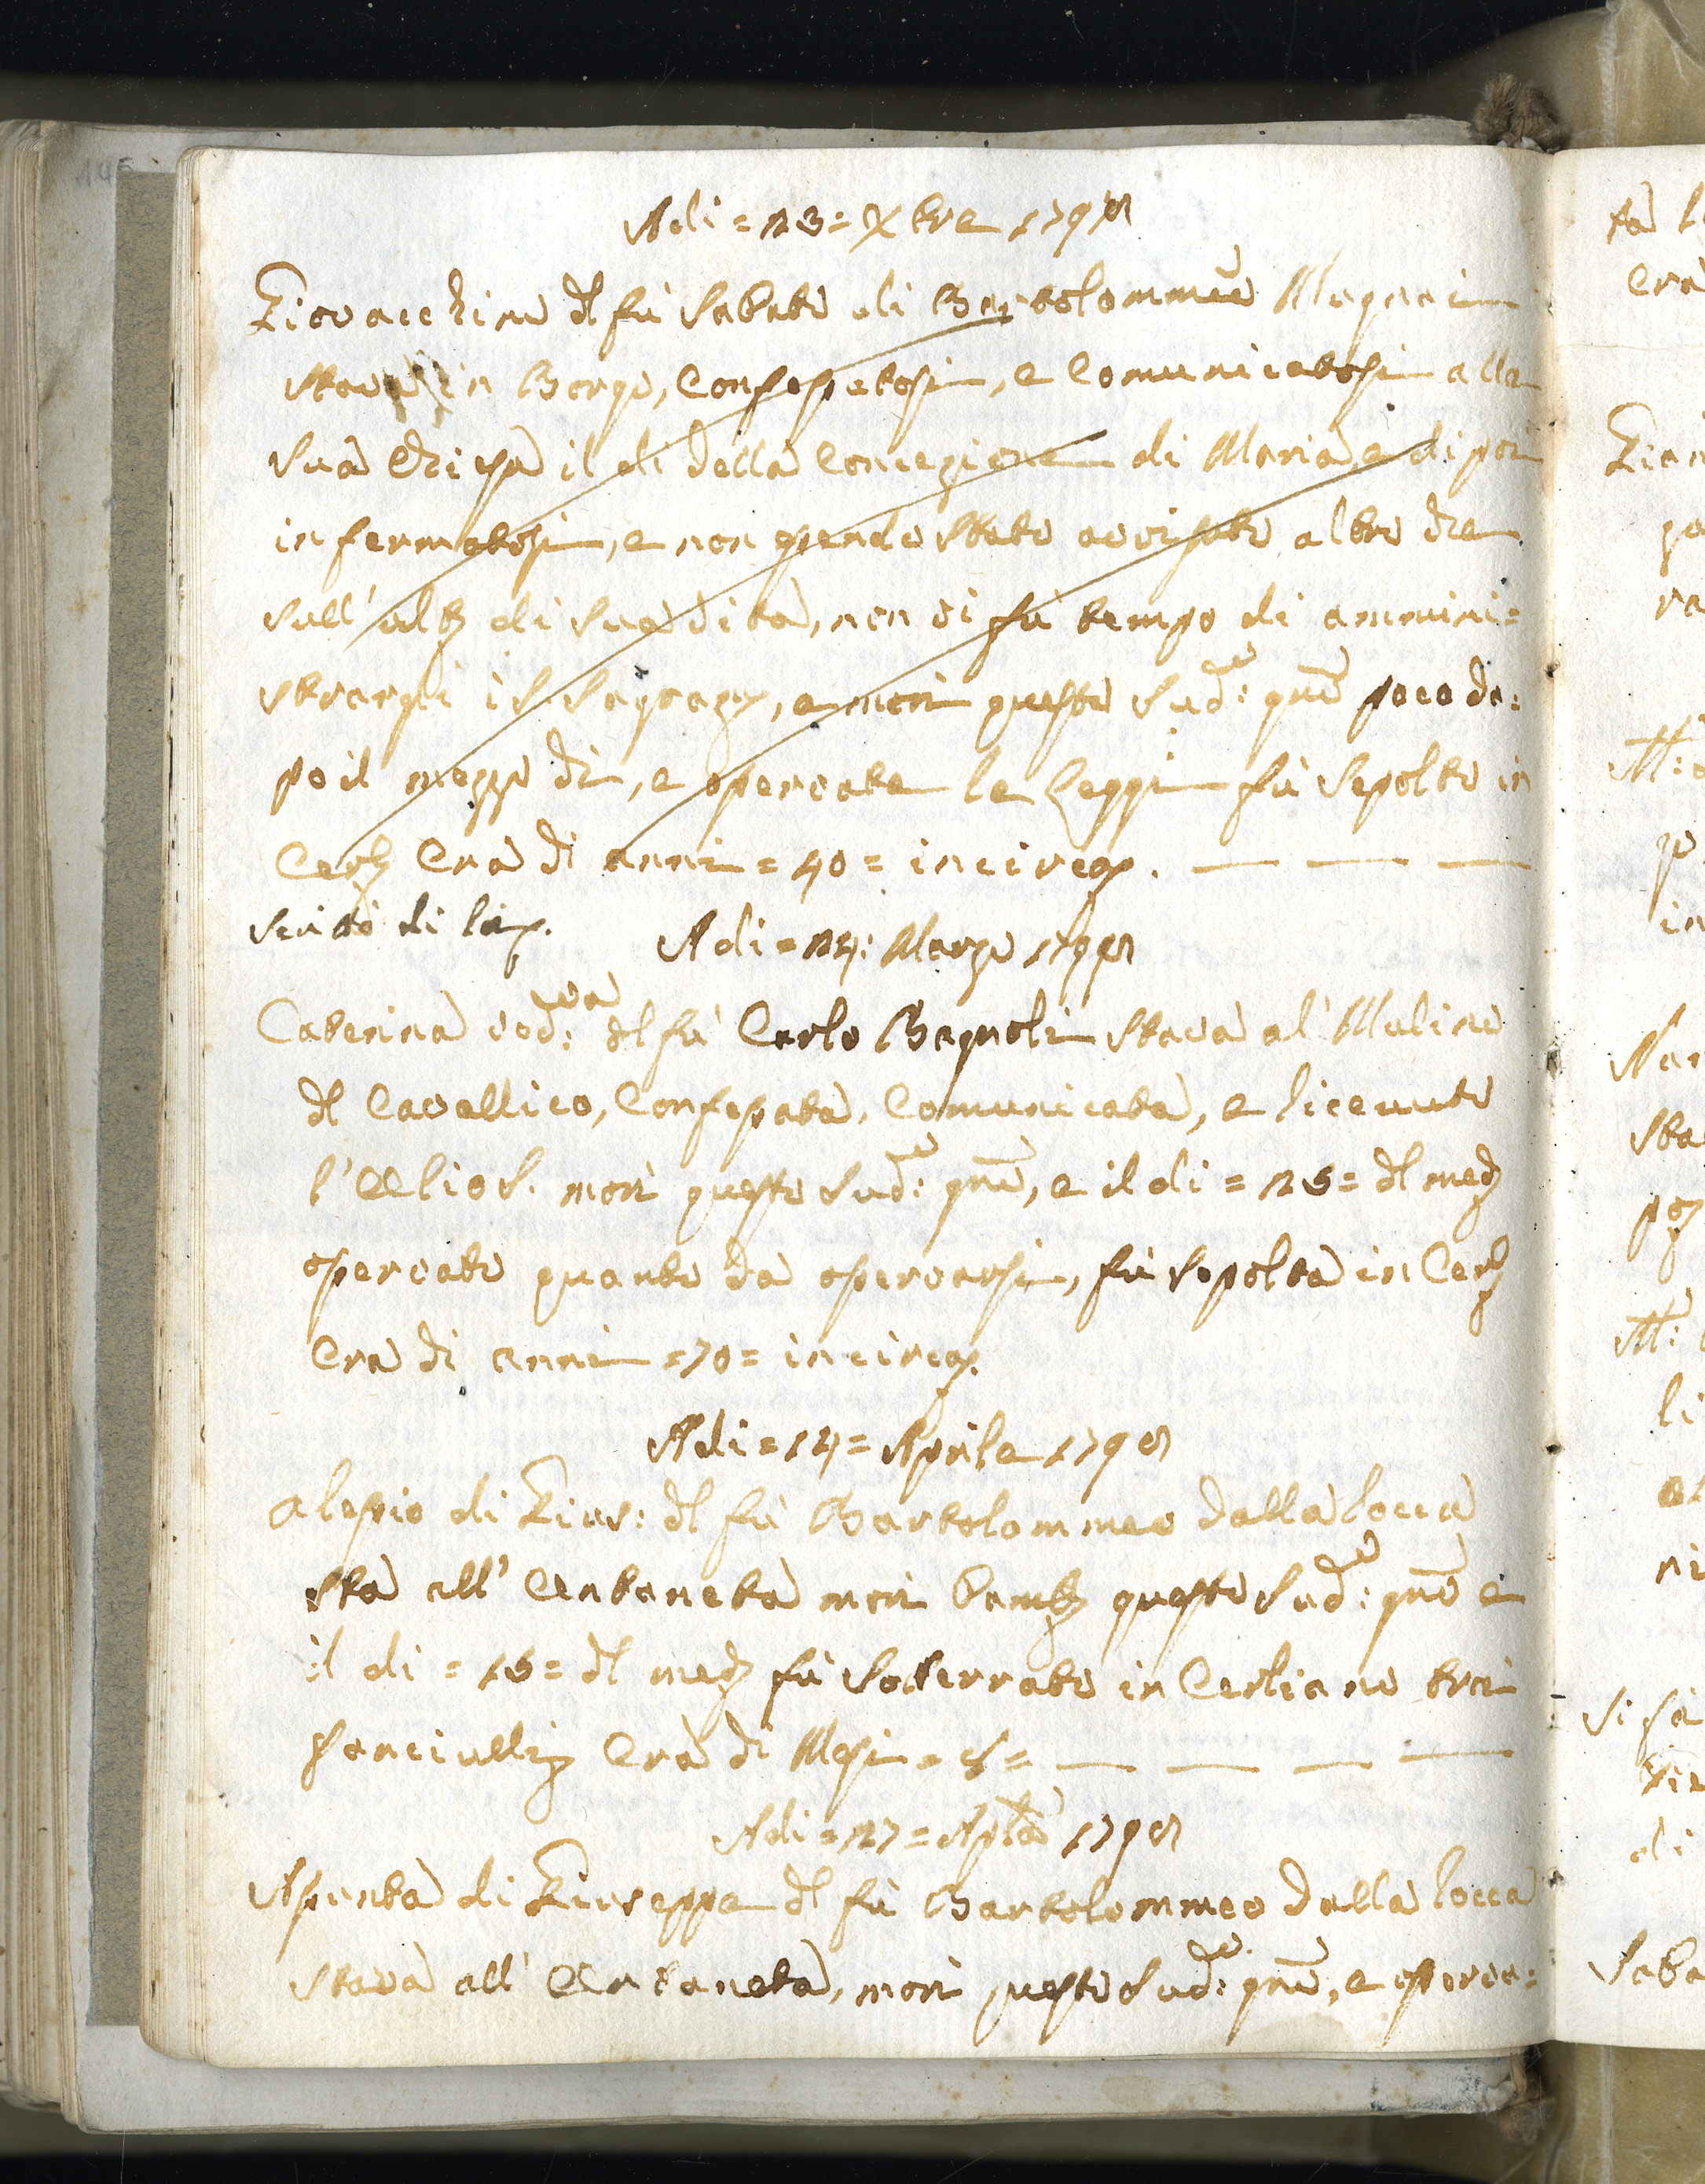 Adi = 23 = Xbre 1795
Giovacchino dl fù Sabato di Bartolommeo Magnani
stava in Borgo, confessatosi, e comunicatosi alla
sua Chiesa il di della Concezione di Maria, e dipoi
infermatosi, e non essendo stato avvisato altro che
sull' ultᵒ di sua vita, non vi fù tempo di ammini=
strargli i SS. Sagrazᵗⁱ, e morì questo sudᵒ: gnõ poco do=
po il mezzo di, e osservate le leggi fù sepolto in
Cerᵒ Era di anni = 40 = incircaᵃ. — — —
scritto di là.
Adi = 24: Marzo 1795
Caterina vedᵛᵃ: dl fù Carlo Bagnoli stava al' Mulino
dl Cavallico, Confessata, Comunicata, e ricevuto
l'Ollio S. morì questo sudᵒ: gnõ, e il di = 25 = dl medᵒ
osservato quanto da osservarsi, fù sepolta in Cerᵒ
Era di anni = 70 = incircaᵃ.
Adi = 14 = Aprile 1795
Alessio di Gius: dl fù Bartolommeo Dalla Rocca
sta all' Centaneta morì bambᵒ questo sudᵒ: gnõ e
il di = 15 = dl medᵒ fù sotterrato in Cerliano trai
fanciulliᵒ Era di Mesi = 5 = — — — —
Adi = 27 = Aplẽ 1795
Assunta di Giuseppe dl fù Bartolommeo Dalla Rocca
stava all' Centaneta, morì questo sudᵒ: gnõ, e osserva=
ta
Era
ra
in
Sta
li
ni
di
Saba